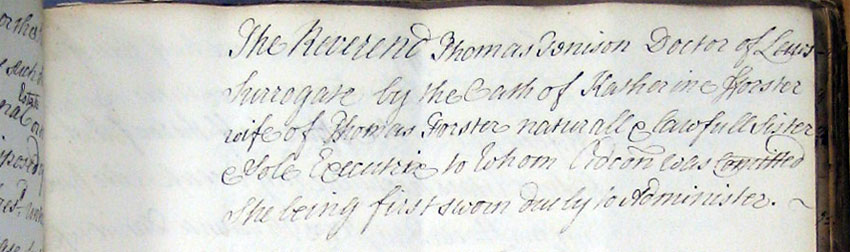 The Reverend Thomas Tenison Doctor of Laws
Surrogate by the Oath of Katherine fforster
wife of Thomas Forster naturall & lawfull Sister
& Sole Executrix to whom Adcõn was Comitted
She being first sworn duly to Administer.